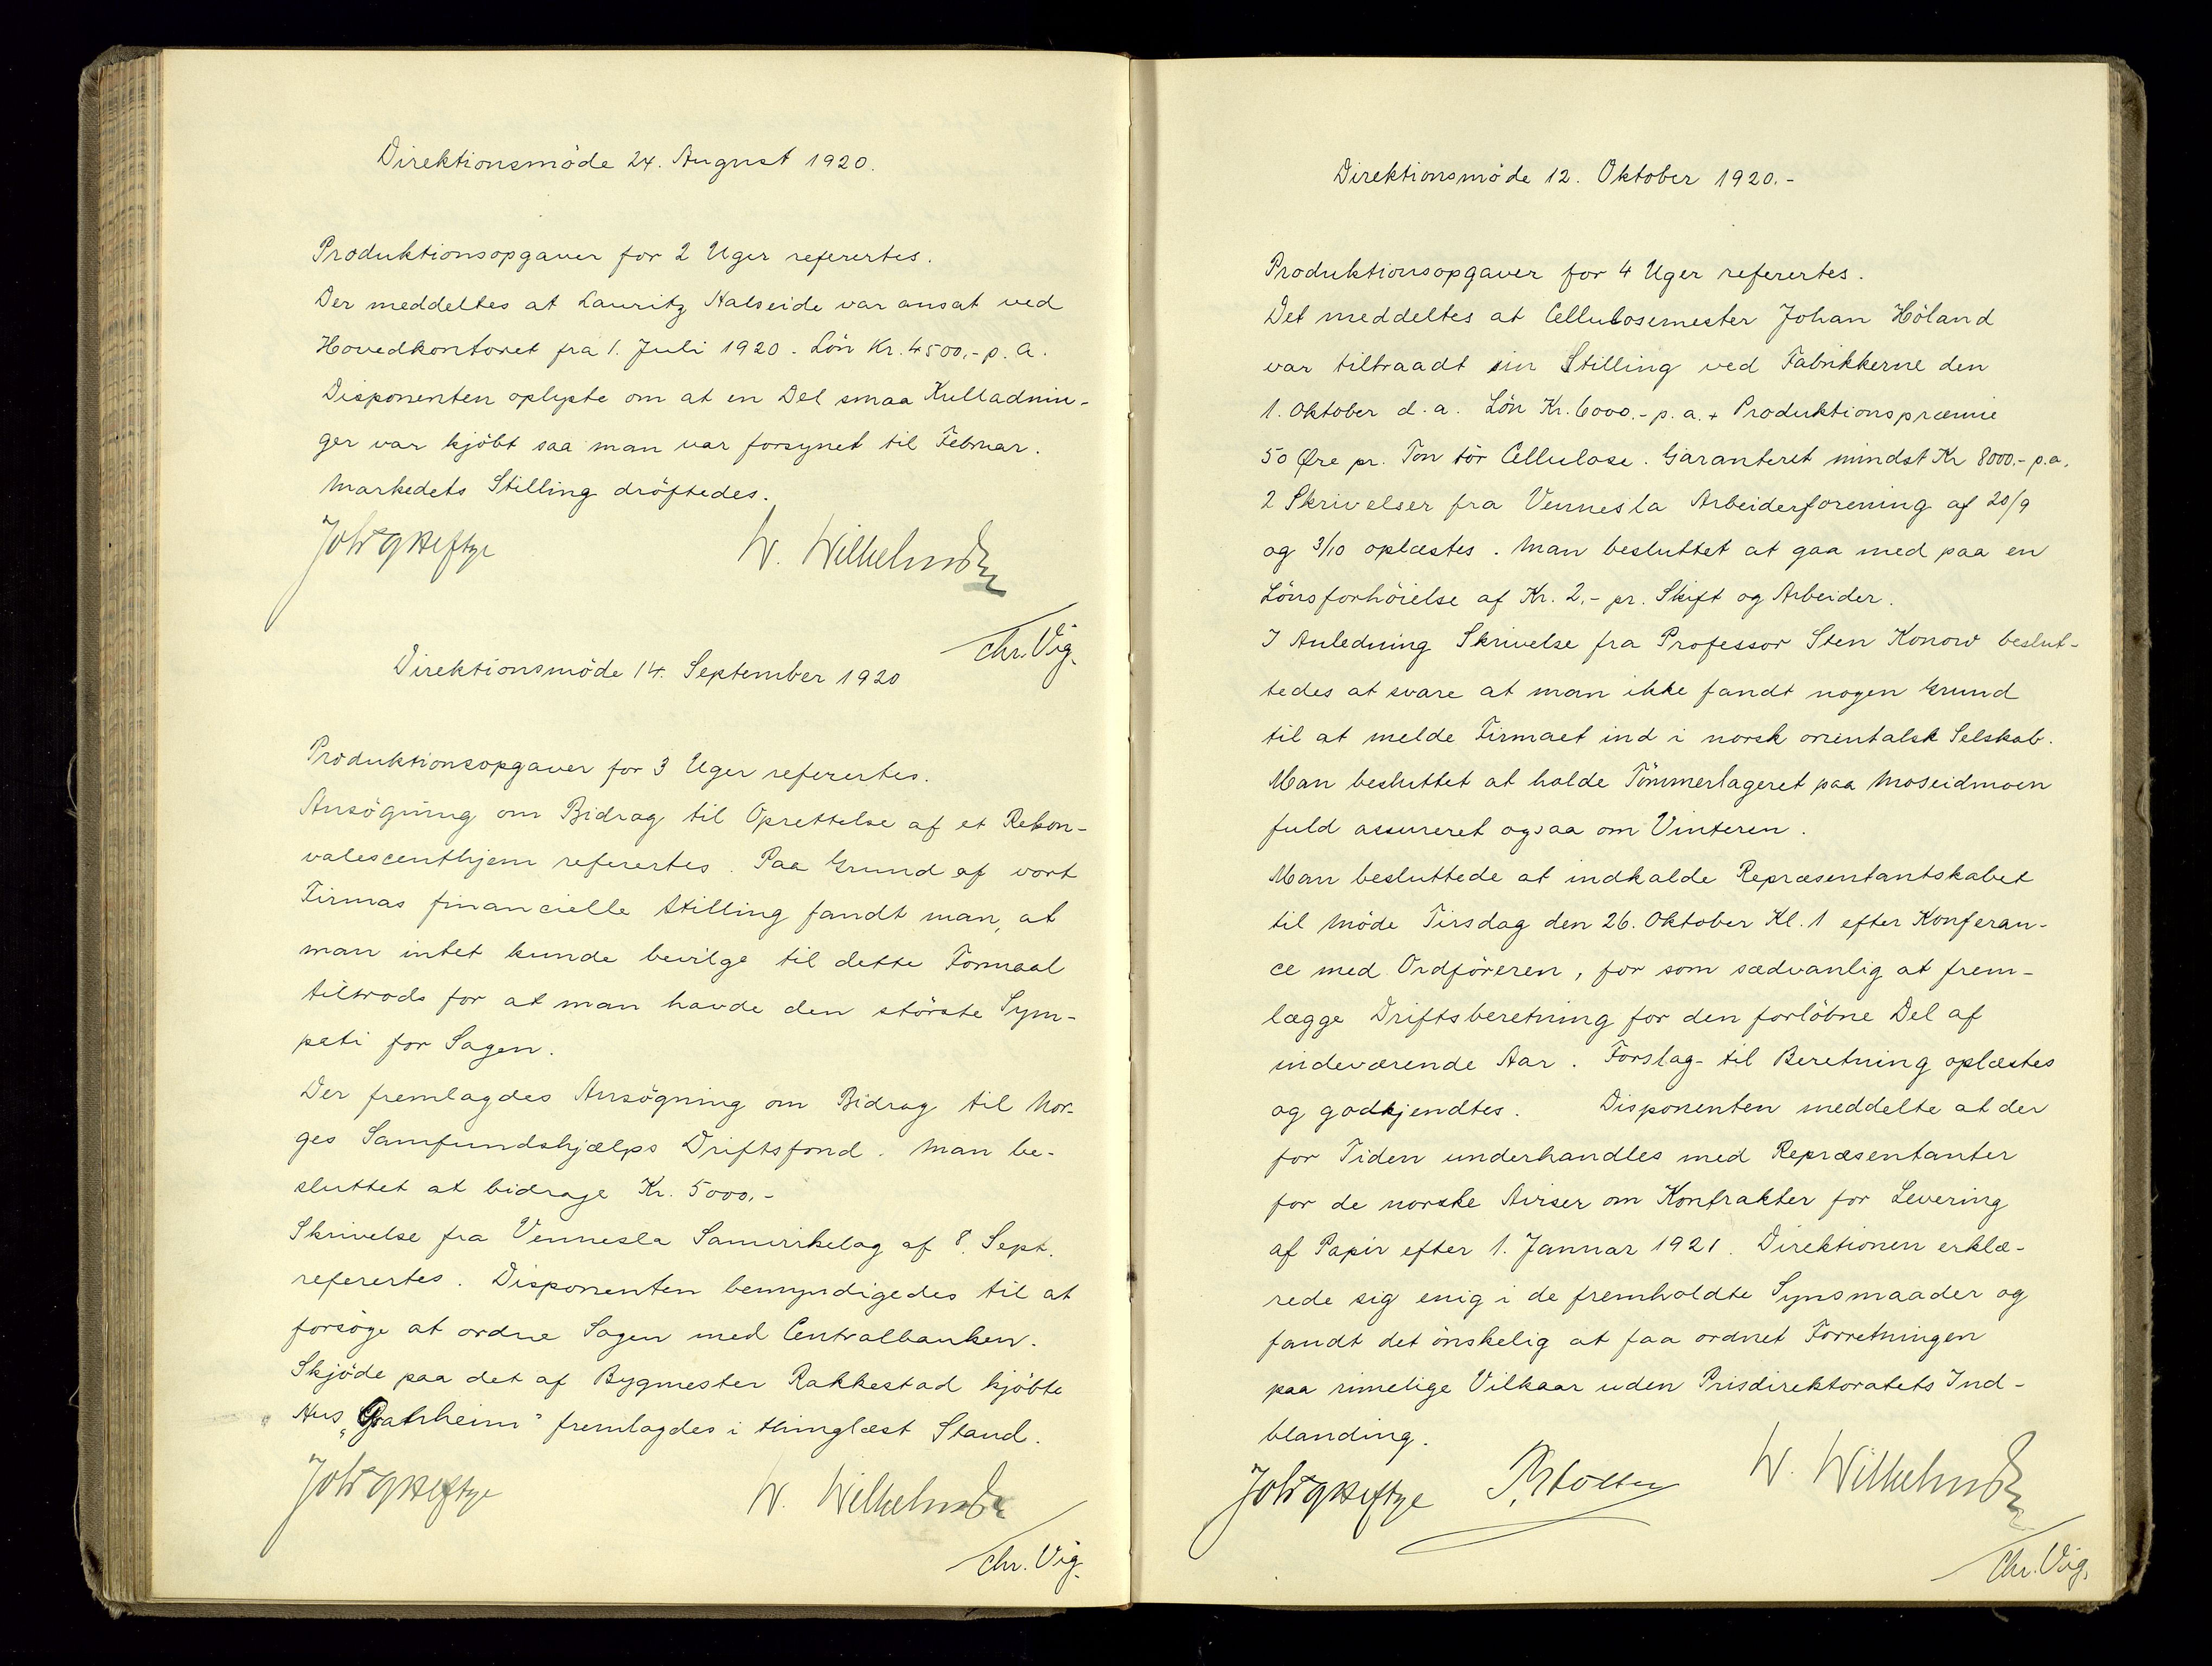 Direktionsmöde 24. August 1920.
Produktionsopgaver for 2 Uger refererdes.
Der meddeltes at Lauritz Nalseide var ansat ved
Hovedkontoret fra 1. Juli 1920. Lön Kr. 4500,- p. a.
Disponenten oplyste om at en Del smaa Kulladnin-
ger var kjöbt saa man var forsynet til Februar.
Markedets Stilling dröftedes.
Joh. Heftye W. Wilhelmsen
Chr. Vig.
Direktionsmöde 14. September 1920
Produktionsopgaver for 3 Uger refererdes.
Ansögning om Bidrag til Oprettelse af et Rekon-
valescenthjem refererdes. Paa Grund af vort
Firmas financielle Stilling fandt man, at
man intet kunde bevilge til dette Formaal
tiltrods for at man havde den störste Sym-
pati for Sagen.
Der fremlagdes Ansögning om Bidrag til Nor-
ges Samfundshjælps Driftsfond. Man be-
sluttet at bidrage Kr. 5000,-
Skrivelse fra Vennesla Samvirkelag af 8. Sept.
refererdes. Disponenten bemyndigedes til at
forsöge at ordne Sagen med Centralbanken.
Skjöde paa det af Bygmester Rakkestad kjöbte
Hus fremlagdes i thinglæst Stand.
Joh. Heftye W. Wilhelmsen
Chr. Vig.
Direktionsmöde 12. Oktober 1920.-
Produktionsopgaver for 4 Uger refererdes.
Det meddeltes at Cellulosemester Johan Höland
var tiltraadt sin Stilling ved Fabrikkerne den
1. Oktober d. a. Lön Kr. 6000.- p. a. + Produktionspræmie
50 Øre pr. Ton tör Cellulose. Garanteret mindst Kr 8000,- p.a.
2 Skrivelser fra Vennesla Arbeiderforening af 20/9
og 3/10 oplæstes. Man besluttet at gaa med paa en
Lönsforhöielse af Kr. 2,- pr. Skift og Arbeider.
I Anledning Skrivelse fra Professor Sten Konow beslut-
tedes at svare at man ikke fandt nogen Grund
til at melde Firmaet ind i norsk orientalsk Selskab.
Man besluttet at holde Tömmerlageret paa Moseidmoen
fuld assureret ogsaa om Vinteren.
Man besluttede at indkalde Repræsentantskabet
til Möde Tirsdag den 26. Oktober Kl. 1 efter Konferan-
ce med Ordföreren, for som sædvanlig at frem-
lægge Driftsberetning for den forlöbne Del af
indeværende Aar. Forslag til Beretning oplæstes
og godkjendtes. Disponenten meddelte at der
for Tiden underhandles med Repræsentanter
for de norske Aviser om Kontrakter for Levering
af Papir efter 1. Januar 1921. Direktionen erklæ-
rede sig enig i de fremholdte Synsmaader og
fandt det önskelig at faa ordnet Forretningen
paa rimelige Vilkaar uden Prisdirektoratets Ind-
blanding.
Joh. Heftye W. Wilhelmsen
Chr. Vig.